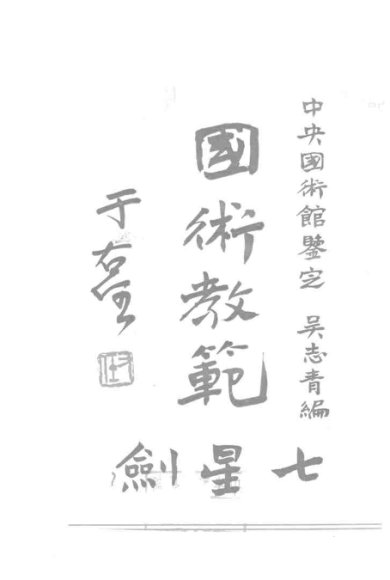 中央國術館鑒定 吴志青編
國術教範
七星劍
于右任